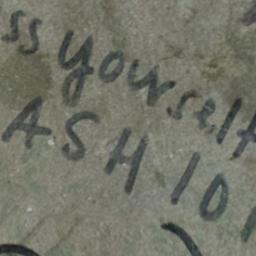 ss yourself
ASH 101